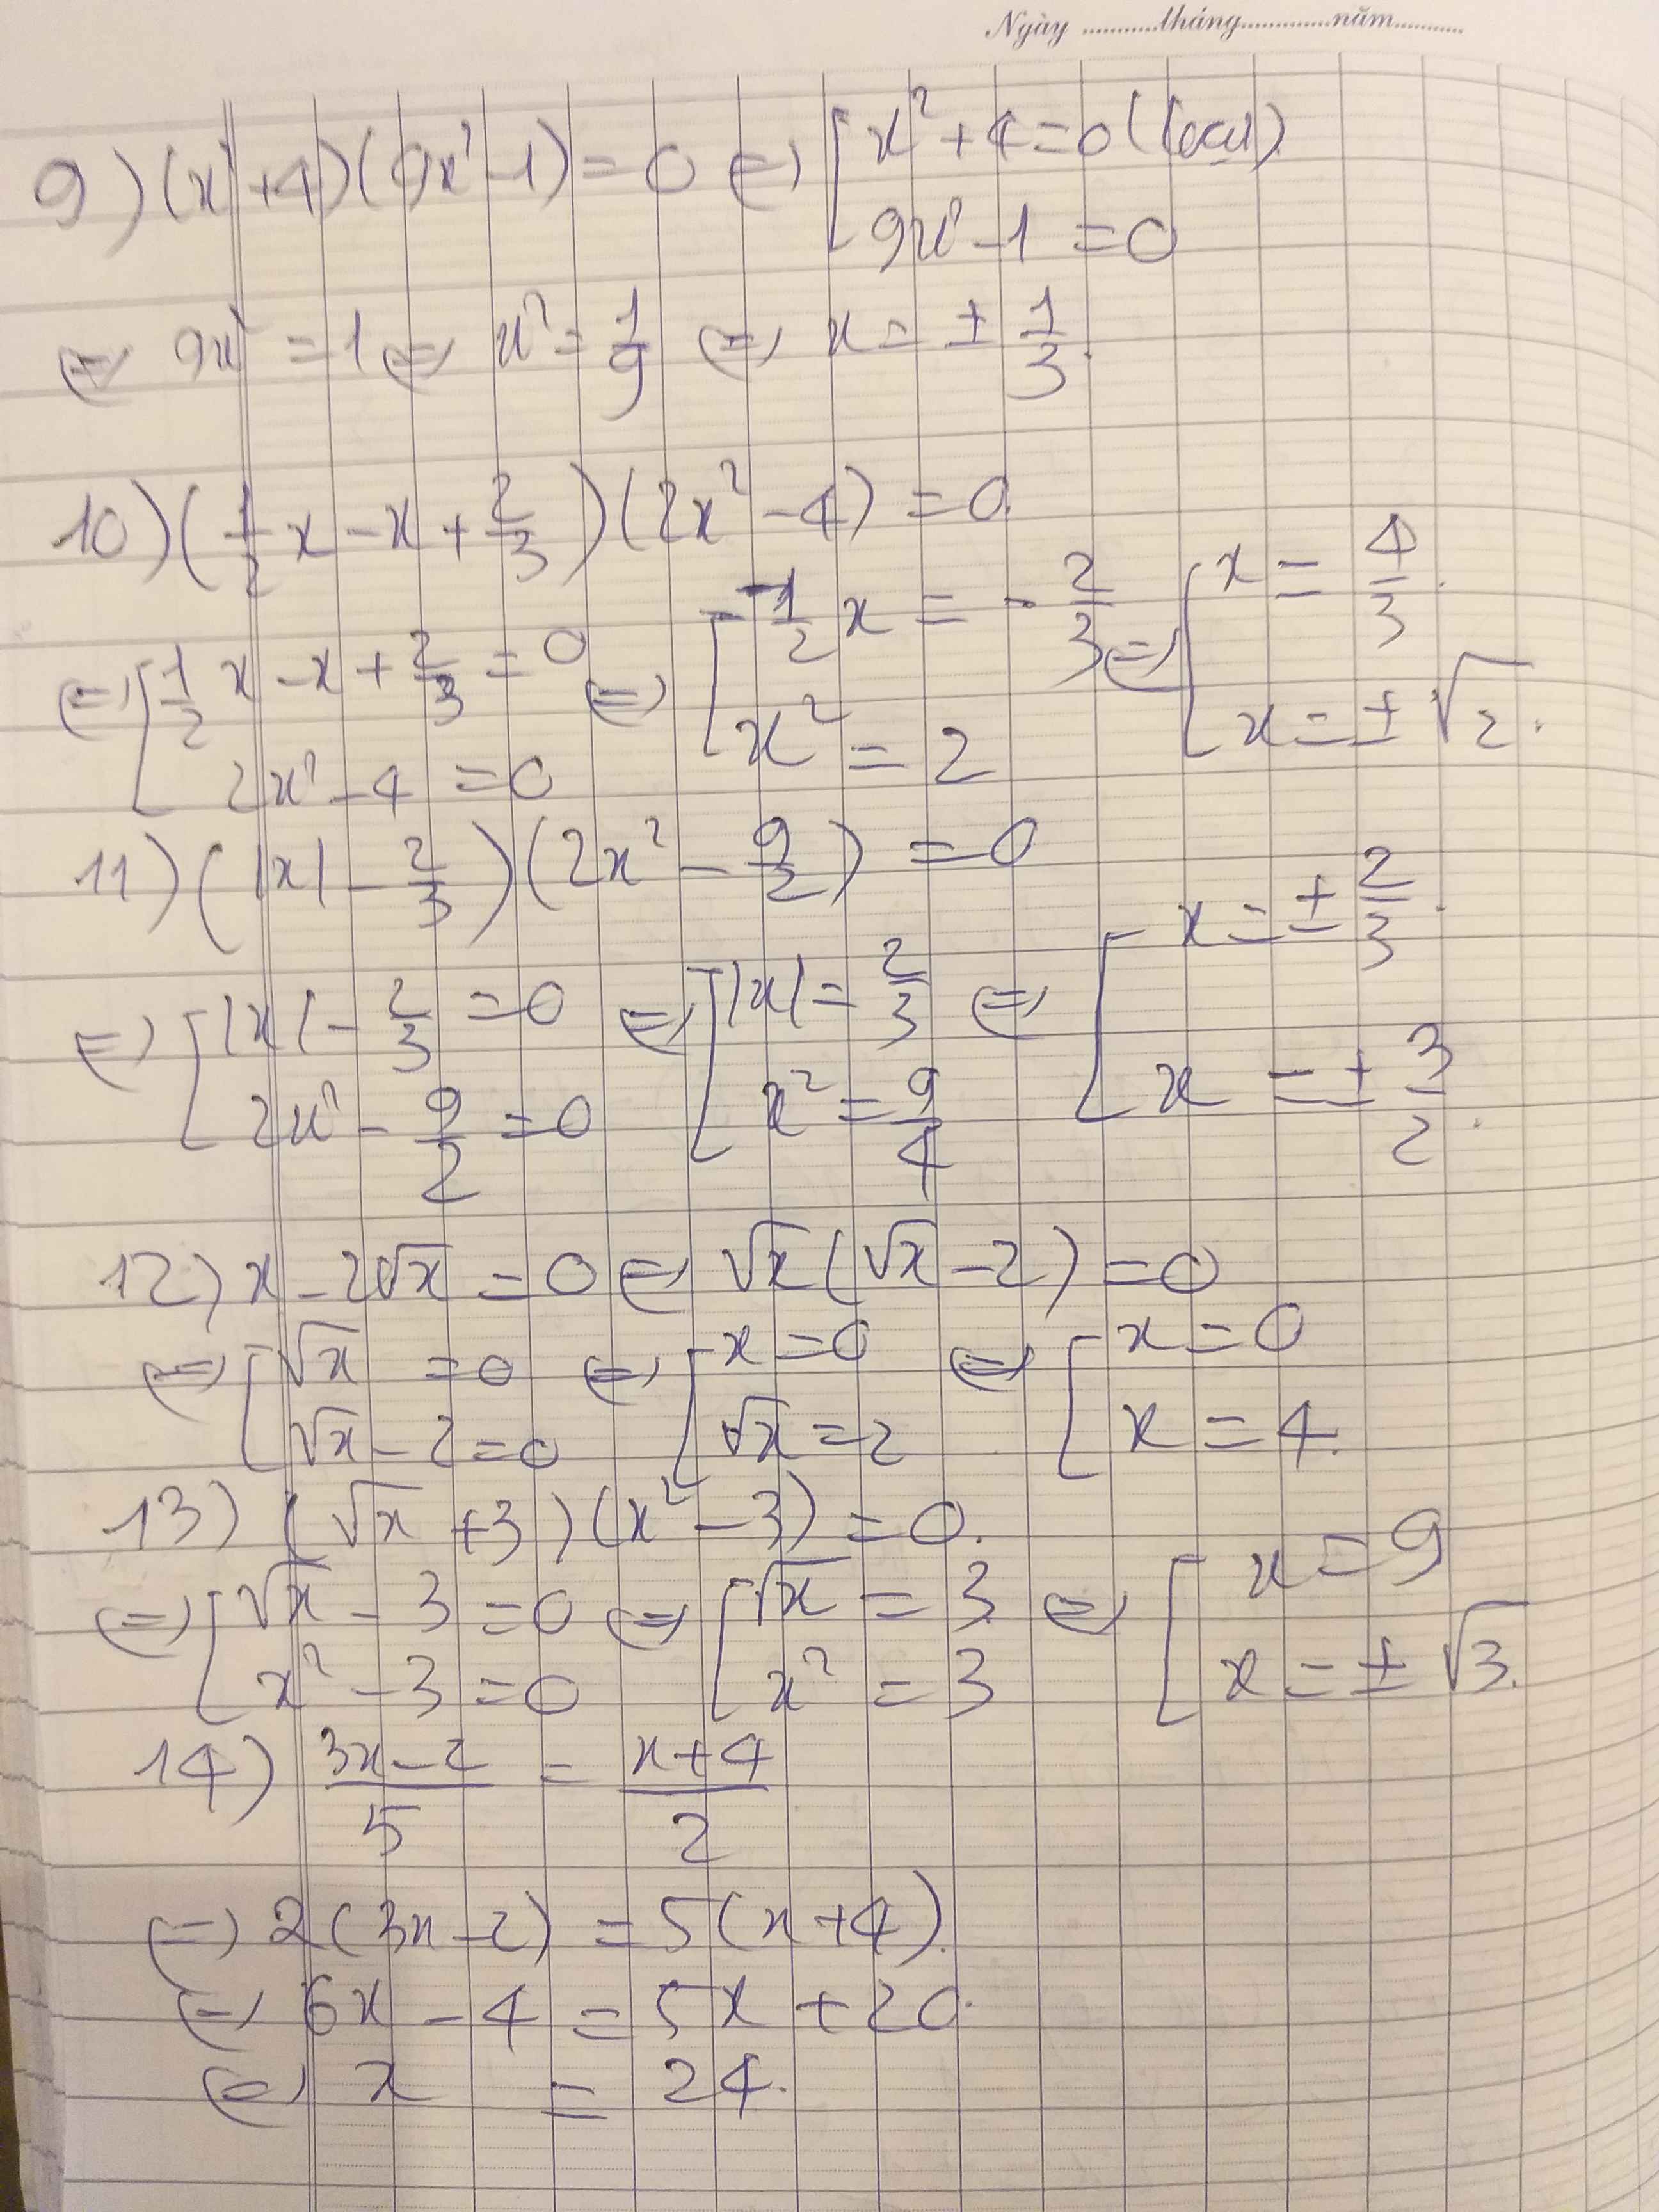 Ngày ...........tháng.............năm..........
9) (x²+4)(9x²-1)=0 ⇔ [ x²+4=0 (loại)
9x²-1=0
⇔ 9x²=1 ⇔ x²=1/9 ⇔ x=±1/3.
10) (1/2x-x+2/3)(2x²-4)=0.
⇔ [ 1/2x-x+2/3=0 ⇔ [ -1/2x=-2/3 ⇔ [ x=4/3.
2x²-4=0 x²=2 x=±√2.
11) (|x|-2/3)(2x²-9/2)=0
⇔ [ |x|-2/3=0 ⇔ [ |x|=2/3 ⇔ [ x=±2/3.
2x²-9/2=0 x²=9/4 x=±3/2.
12) x-2√x=0 ⇔ √x(√x-2)=0
⇔ [ √x=0 ⇔ [ x=0 ⇔ [ x=0
√x-2=0 √x=2 x=4.
13) (√x+3)(x²-3)=0.
⇔ [ √x-3=0 ⇔ [ √x=3 ⇔ [ x=9
x²-3=0 x²=3 x=±√3.
14) (3x-2)/5 = (x+4)/2
⇔ 2(3x-2)=5(x+4).
⇔ 6x-4=5x+20.
⇔ x=24.